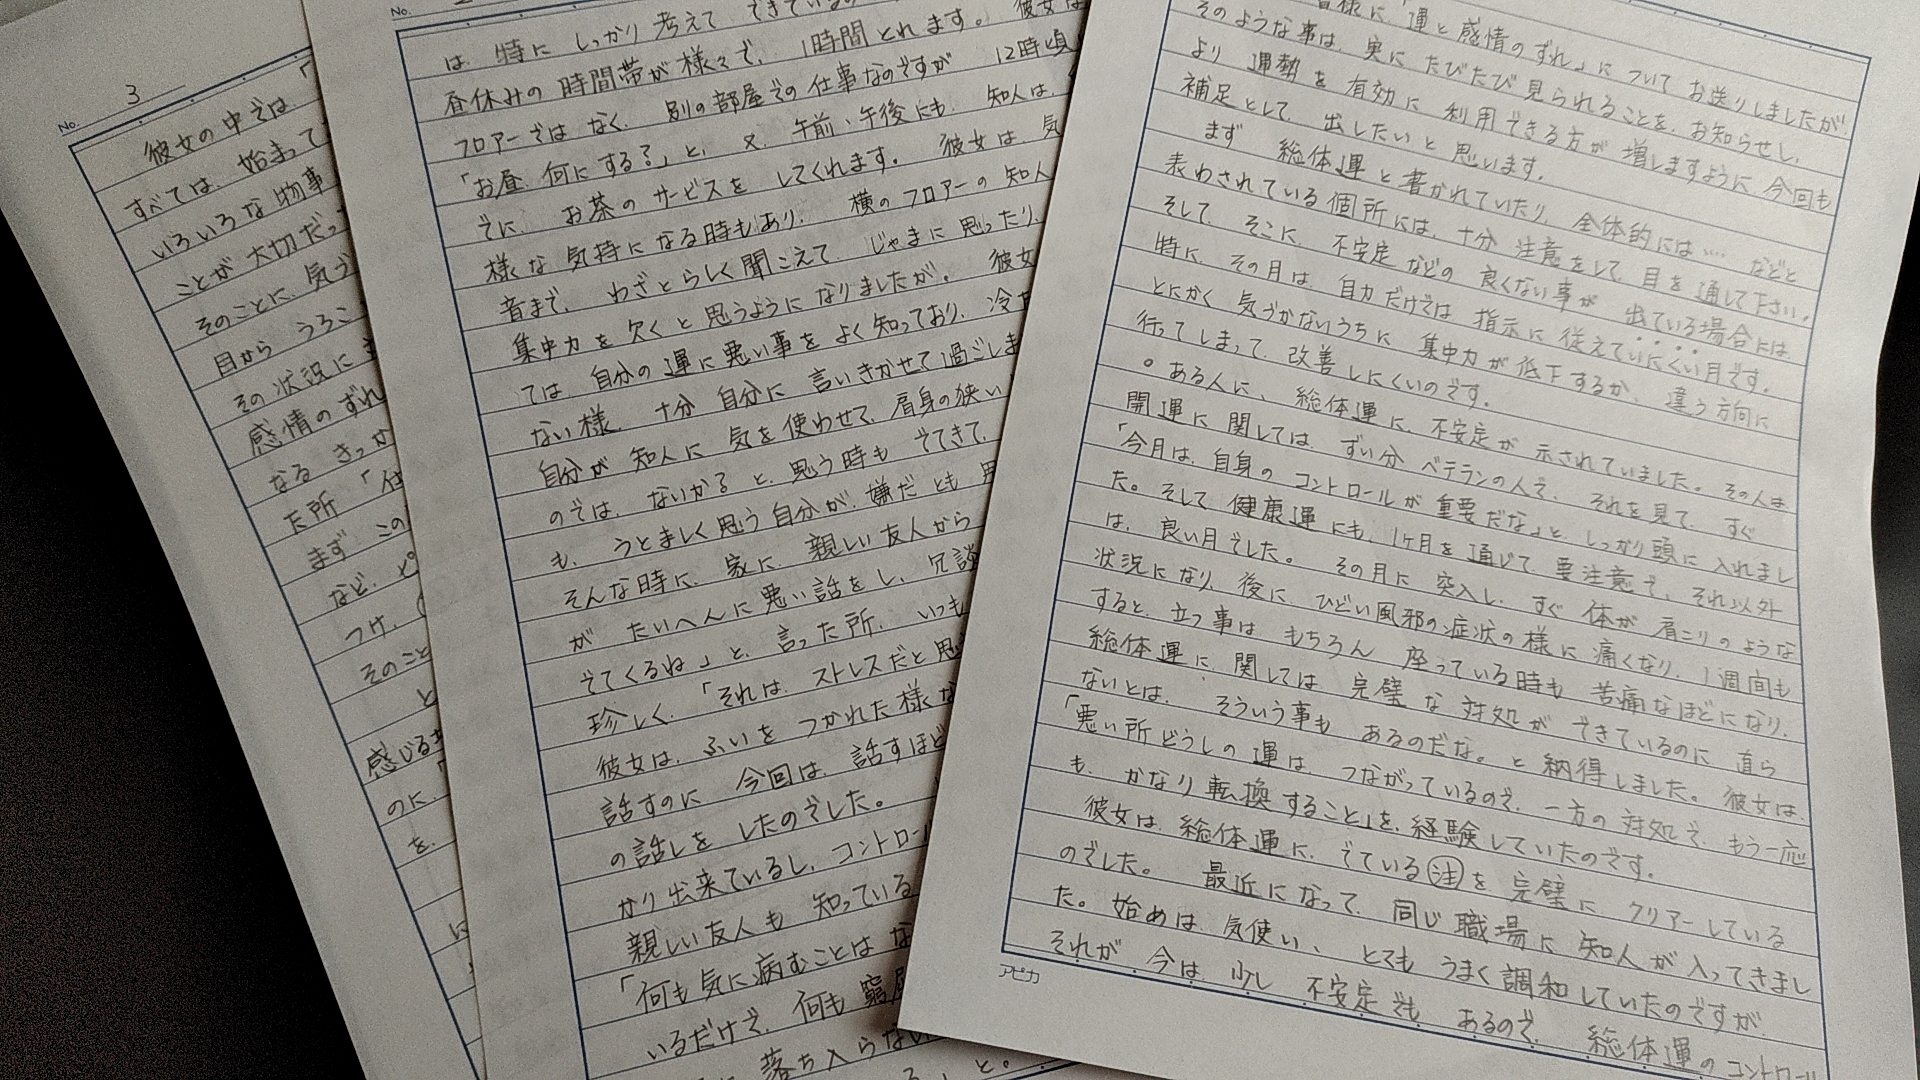 皆様に「運と感情のずれ」についてお送りしましたが
そのような事は、実にたびたび見られることを、お知らせし、
より運勢を有効に利用できる方が増しますように今回も
補足として、出したいと思います。
まず総体運と書かれていたり、全体的には…などと
表わされている個所には、十分注意をして目を通して下さい。
そして、そこに、不安定などの良くない事が出ている場合には
特に、その月は、自力だけでは指示に従えていにくい月です。
とにかく気づかないうちに集中力が低下するか、違う方向に
行ってしまって、改善しにくいのです。
○ある人に、総体運に、不安定が示されていました。その人は
開運に関しては、ずい分ベテランの人で、それを見て、すぐ
「今月は、自身のコントロールが重要だな」と、しっかり頭に入れまし
た。そして健康運にも、1ヶ月を通じて要注意で、それ以外
は、良い月でした。その月に突入し、すぐ体が肩こりのような
状況になり、後に、ひどい風邪の症状の様に痛くなり、1週間も
すると、立つ事はもちろん座っている時も苦痛なほどになり、
総体運に、関しては、完璧な対処ができているのに直ら
ないとは、そういう事もあるのだな。と納得しました。彼女は、
「悪い所どうしの運は、つながっているので、一方の対処で、もう一応
も、かなり転換すること」を、経験していたのです。
彼女は、総体運に、でている注を完璧にクリアーしている
のでした。最近になって、同じ職場に知人が入ってきまし
た。始めは、気使い、とてもうまく調和していたのですが、
それが、今は、少し不安定でも、あるので、総体運のコントロール
アピカ
No.
は、特にしっかり考えてできているの
昼休みの時間帯が様々で、1時間とれます。彼女は
フロアーではなく、別の部屋での仕事なのですが12時頃
「お昼、何にする?」と、又、午前、午後にも、知人は、
でに、お茶のサービスをしてくれます。彼女は、気
様な気持になる時もあり、横のフロアーの知人
音まで、わざとらしく聞こえてじゃまに思ったり、
集中力を欠くと思うようになりましたが、彼女
ては、自分の運に悪い事をよく知っており、冷
ない様、十分自分に言いきかせて過ごしま
自分が知人に気を使わせて、肩身の狭い
のでは、ないか?と、思う時もでてきて、
も、うとましく思う自分が、嫌だとも思
そんな時に、家に、親しい友人から
がたいへんに悪い話をし、冗談
でてくるね」と、言った所、いつも
珍しく、「それは、ストレスだと思
彼女は、ふいをつかれた様な
話すのに今回は、話すほど
の話しをしたのでした。
かり出来ているし、コントロール
親しい友人も知っている
「何も気に病むことはな
いるだけで、何も窮屈
落ち入らない
」と。
No. 3
彼女の中では、「
すべては、始まって
いろいろな物事
ことが大切だった
そのことに、気づ
目からうろこ
その状況に
感情のずれ
なるきっか
た所「仕
まずこの
など、ピ
つけ、
そのこと
と
感じる
のに、
を、